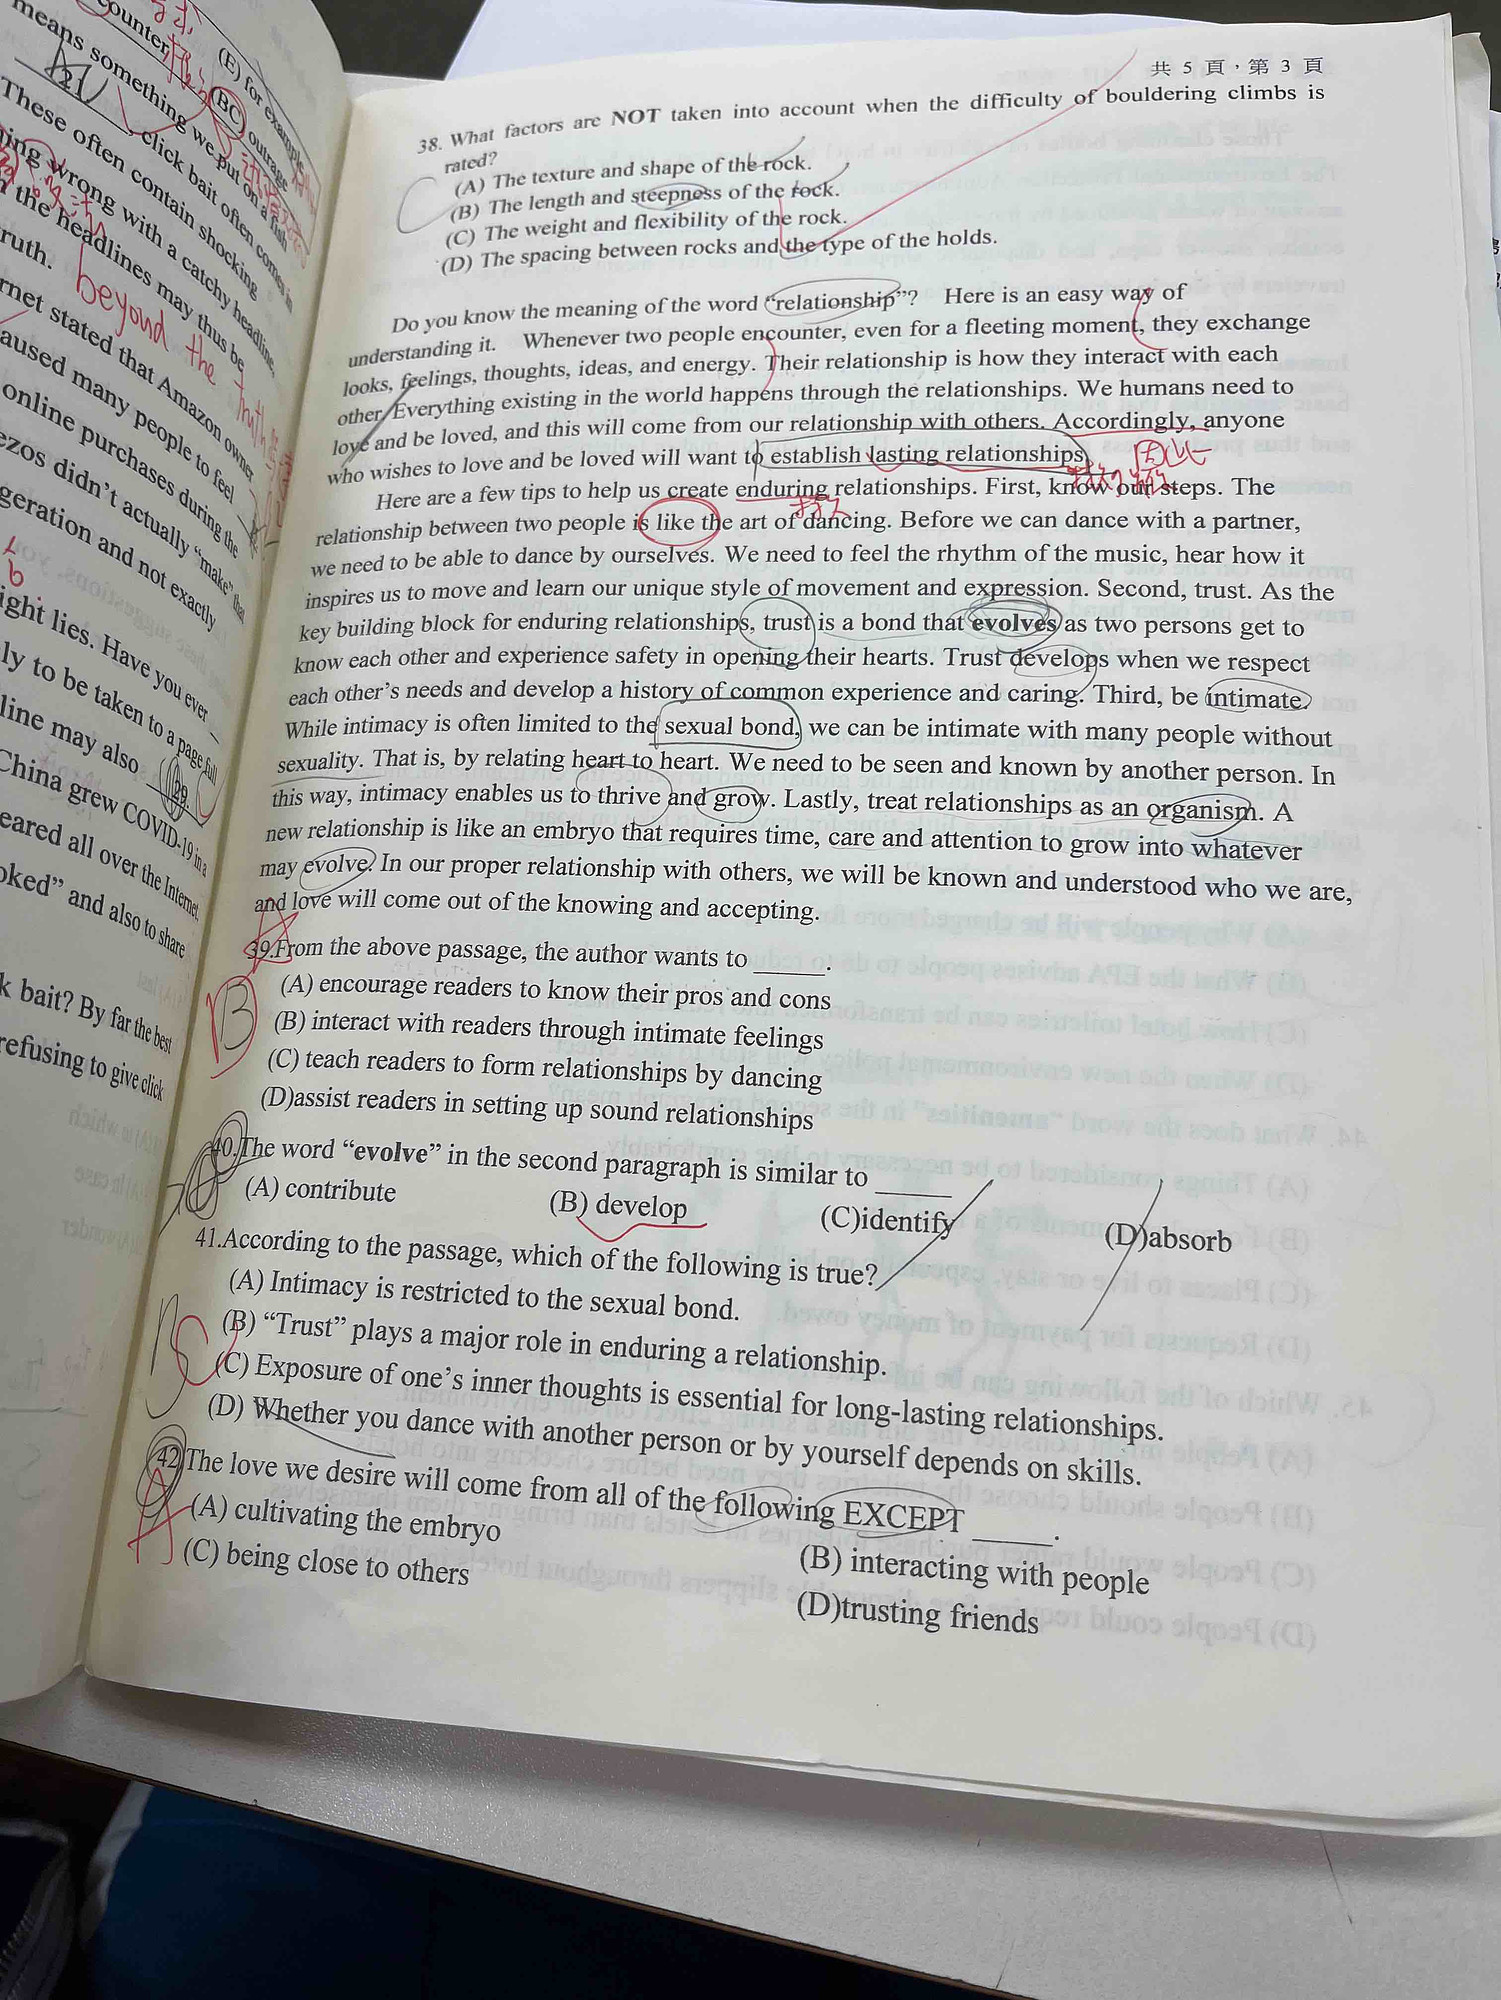 counter,
(E) for example
means something we put on a fish
(BC) outrage
21
, click bait often comes in
These often contain shocking
wrong with a catchy headline,
the headlines may thus be
beyond the truth
rnet stated that Amazon owner
aused many people to feel
online purchases during the
ezos didn't actually “make” that
geration and not exactly
ight lies. Have you ever
ly to be taken to a page full
line may also 29
China grew COVID-19 in a
eared all over the Internet
oked” and also to share
k bait? By far the best
refusing to give click
共 5 頁，第 3 頁
38. What factors are NOT taken into account when the difficulty of bouldering climbs is
rated?
(A) The texture and shape of the rock.
(B) The length and steepness of the rock.
(C) The weight and flexibility of the rock.
(D) The spacing between rocks and the type of the holds.
Do you know the meaning of the word “relationship”? Here is an easy way of
understanding it. Whenever two people encounter, even for a fleeting moment, they exchange
looks, feelings, thoughts, ideas, and energy. Their relationship is how they interact with each
other. Everything existing in the world happens through the relationships. We humans need to
love and be loved, and this will come from our relationship with others. Accordingly, anyone
who wishes to love and be loved will want to establish lasting relationships.
Here are a few tips to help us create enduring relationships. First, know our steps. The
relationship between two people is like the art of dancing. Before we can dance with a partner,
we need to be able to dance by ourselves. We need to feel the rhythm of the music, hear how it
inspires us to move and learn our unique style of movement and expression. Second, trust. As the
key building block for enduring relationships, trust is a bond that evolves as two persons get to
know each other and experience safety in opening their hearts. Trust develops when we respect
each other's needs and develop a history of common experience and caring. Third, be intimate.
While intimacy is often limited to the sexual bond, we can be intimate with many people without
sexuality. That is, by relating heart to heart. We need to be seen and known by another person. In
this way, intimacy enables us to thrive and grow. Lastly, treat relationships as an organism. A
new relationship is like an embryo that requires time, care and attention to grow into whatever
may evolve. In our proper relationship with others, we will be known and understood who we are,
and love will come out of the knowing and accepting.
39.From the above passage, the author wants to ______.
(A) encourage readers to know their pros and cons
B
(B) interact with readers through intimate feelings
(C) teach readers to form relationships by dancing
(D)assist readers in setting up sound relationships
40.The word “evolve” in the second paragraph is similar to ______
(A) contribute (B) develop (C)identify (D)absorb
41.According to the passage, which of the following is true?
(A) Intimacy is restricted to the sexual bond.
(B) “Trust” plays a major role in enduring a relationship.
(C) Exposure of one's inner thoughts is essential for long-lasting relationships.
(D) Whether you dance with another person or by yourself depends on skills.
42.The love we desire will come from all of the following EXCEPT ______.
A
(A) cultivating the embryo (B) interacting with people
(C) being close to others (D)trusting friends